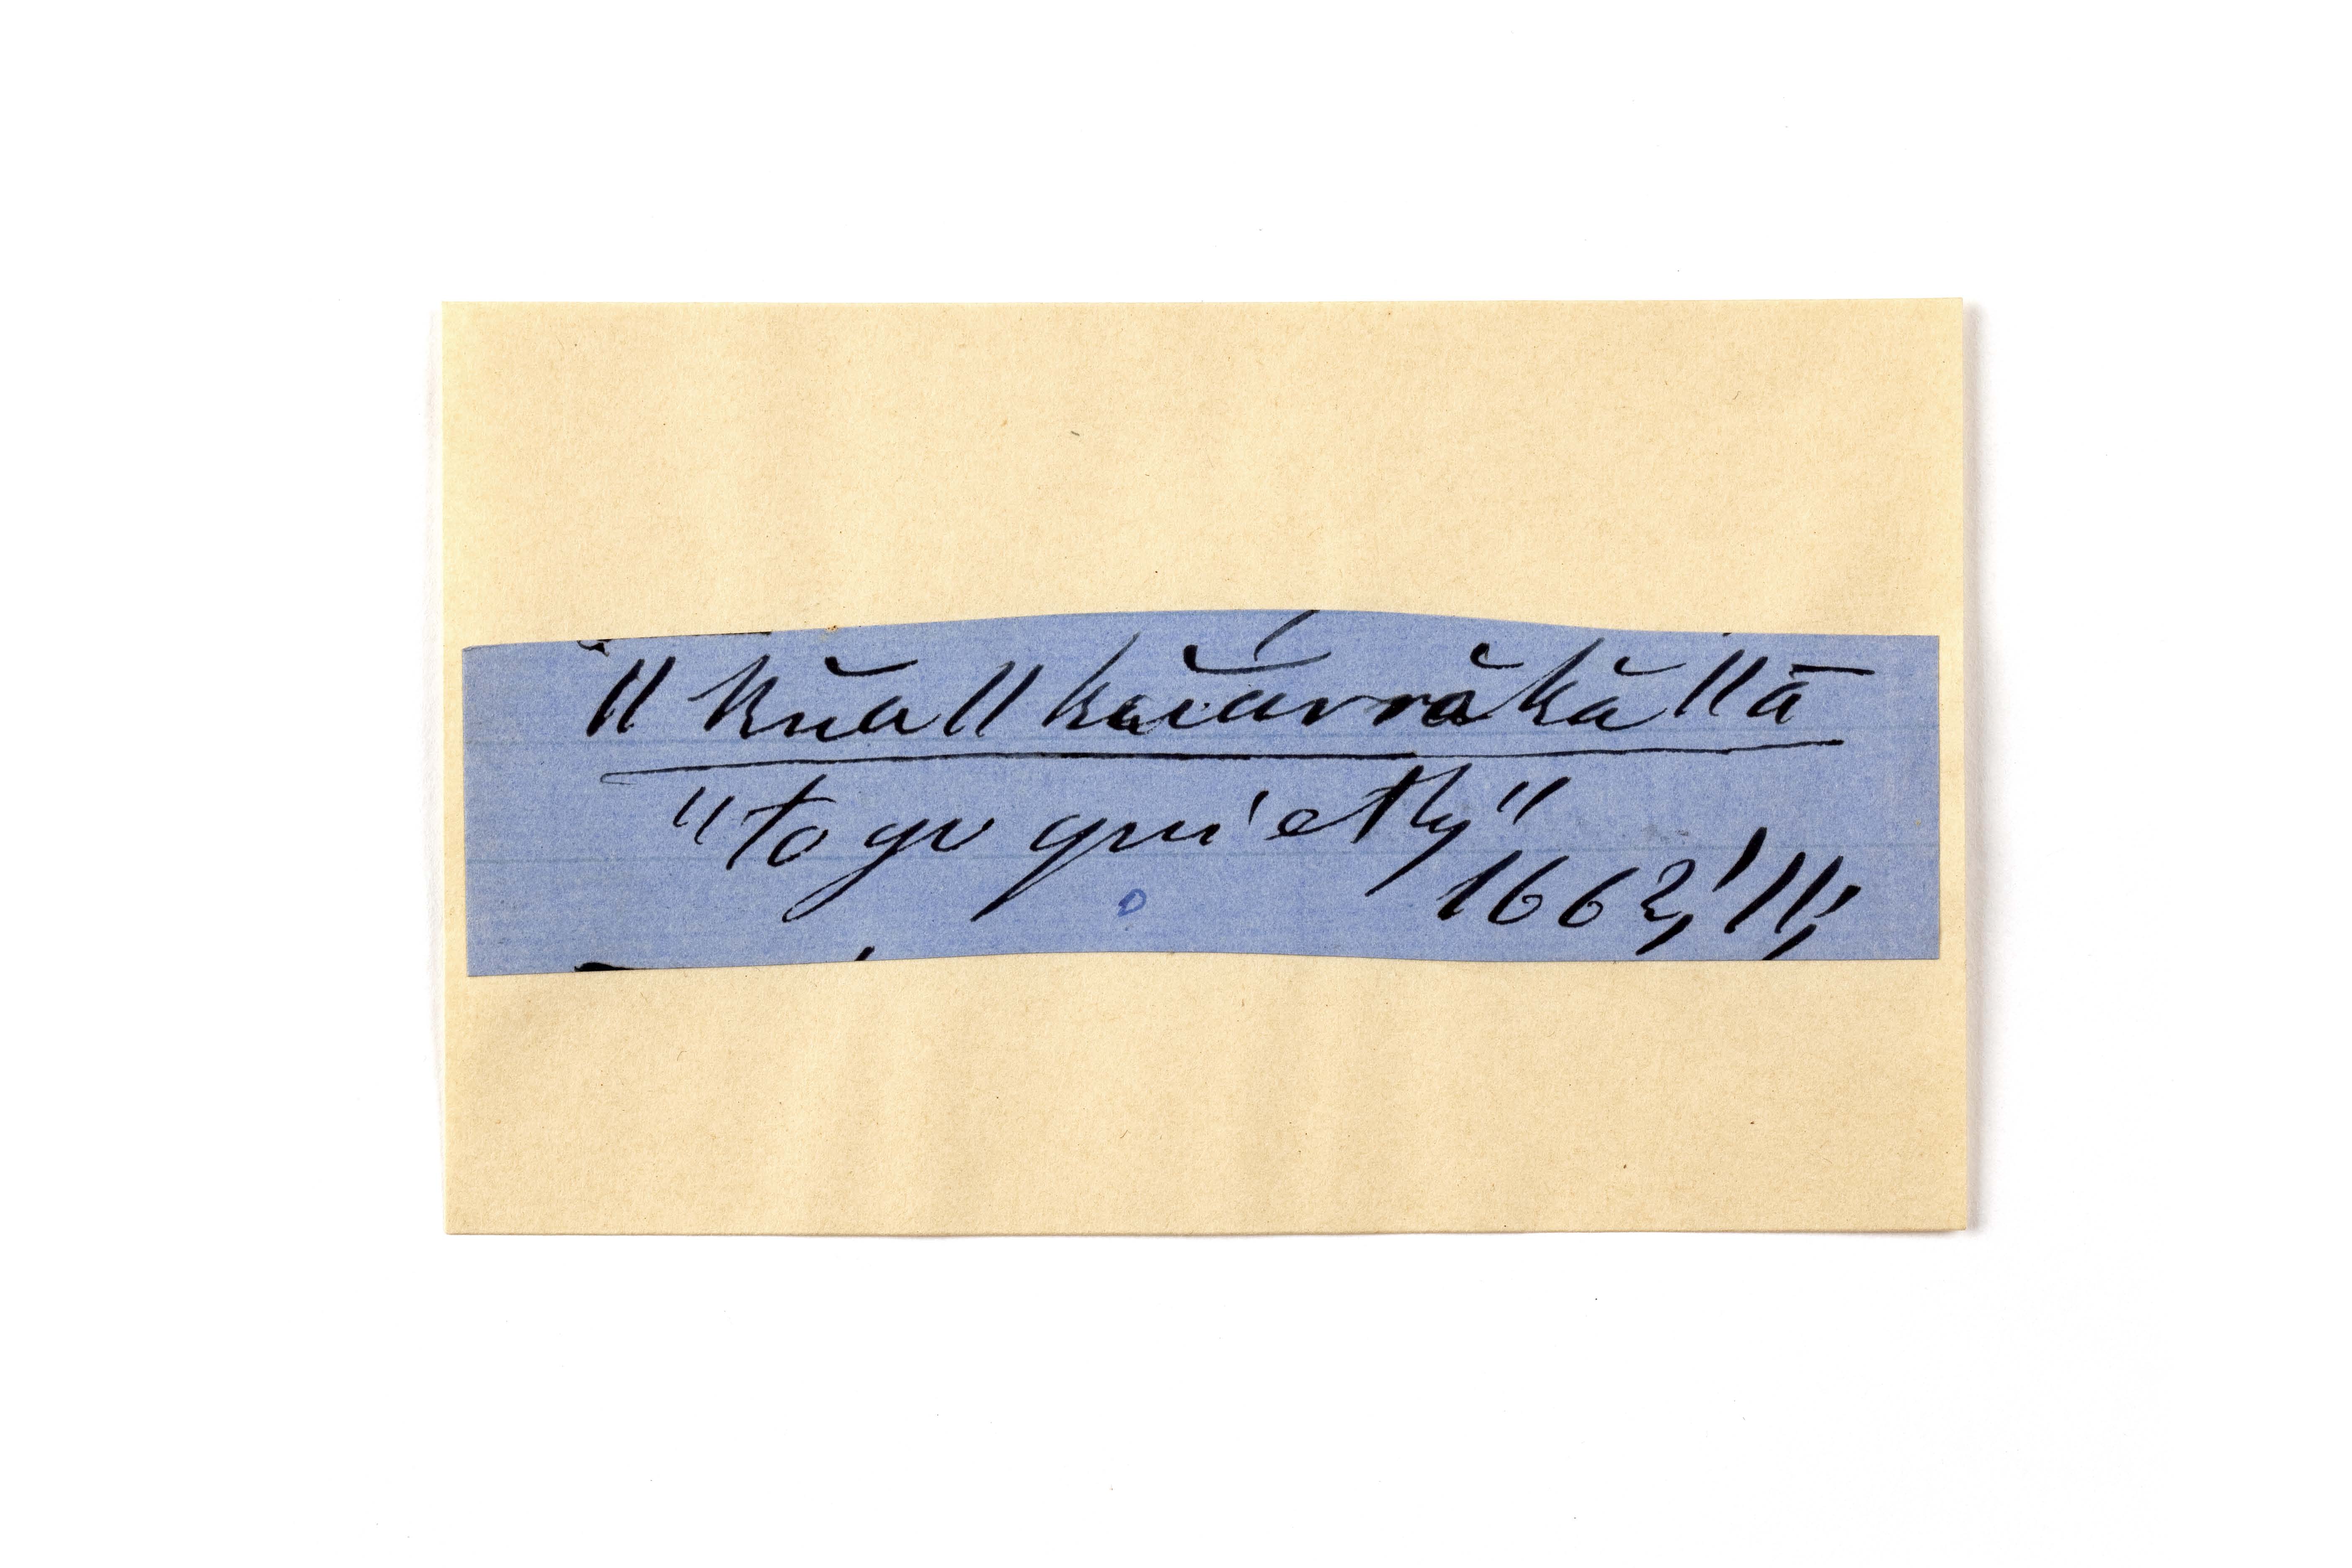 ǁkŭaǁkaĭăvrăkăǁā
"to go quietly"
1662,'11;'